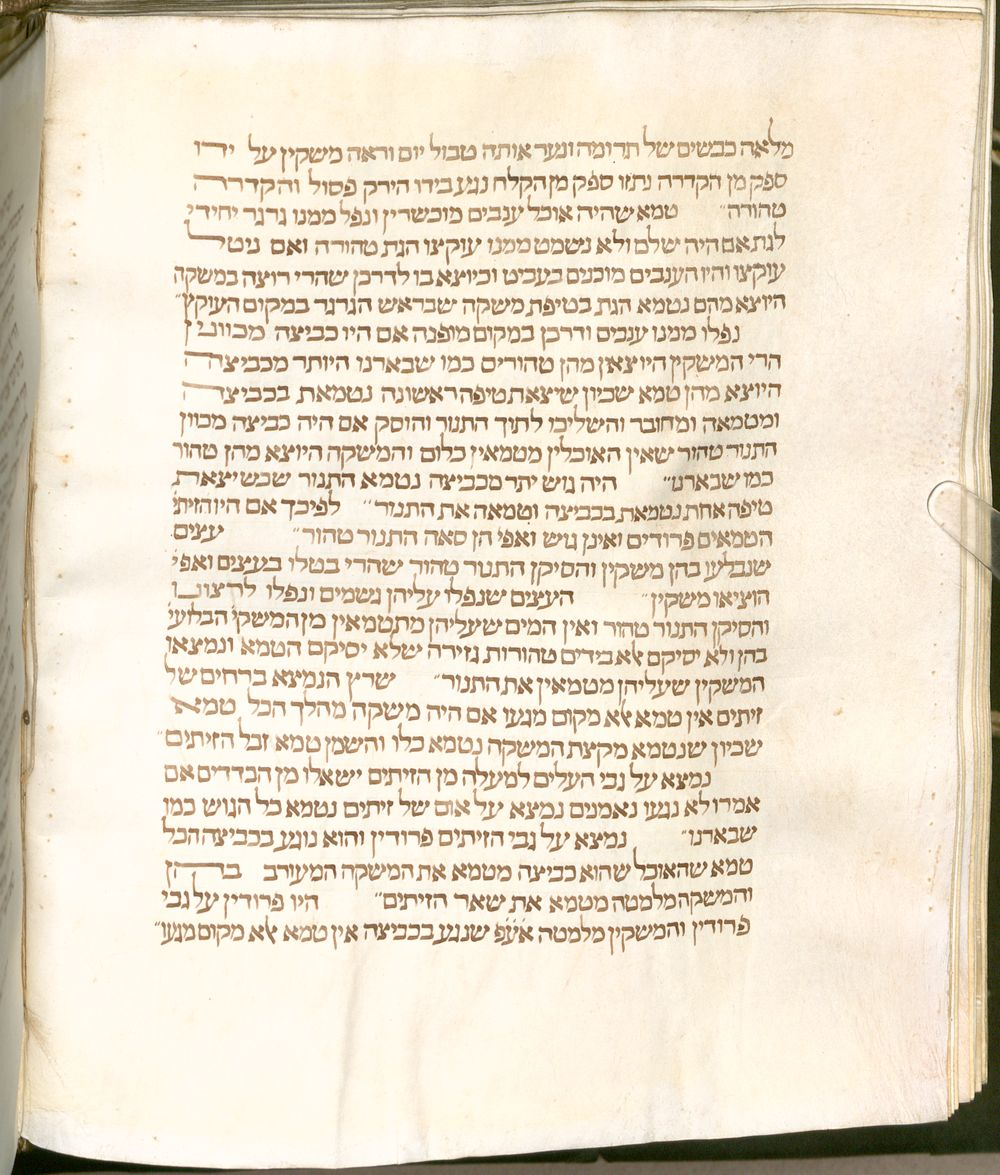 מלאה כבשים של תרומה ונער אותה טבול יום וראה משקין על ידו
ספק מן הקדרה נתזו ספק מן הקלח נגע בידו הירק פסול והקדרה
טהורה״ טמא שהיה אוכל ענבים מוכשרין ונפל ממנו גרגר יחידי
לגת אם היה שלם ולא נשמט ממנו עוקצו הגת טהורה ואם ניטל
עוקצו והיו הענבים מוכנים בעביט וכיוצא בו לדרכן שהרי רוצה במשקה
היוצא מהם נטמא הגת בטיפת משקה שבראש הגרגר במקום העוקץ״
נפלו ממנו ענבים ודרכן במקום מופנה אם היו כביצה מכוונין
הרי המשקין היוצאין מהן טהורים כמו שבארנו היותר מכביצה
היוצא מהן טמא שכיון שיצאת טיפה ראשונה נטמאת בכביצה
ומטמאה ומחובר והשליכו לתוך התנור והוסק אם היה כביצה מכוון
התנור טהור שאין האוכלין מטמאין כלום והמשקה היוצא מהן טהור
כמו שבארנו״ היה גוש יתר מכביצה נטמא התנור שכשיצאת
טיפה אחת נטמאת בכביצה וטמאה את התנור״ לפיכך אם היו הזיתי
הטמאים פרודים ואינן גוש ואפי הן סאה התנור טהור״ עצים
שנבלעו בהן משקין והסיקן התנור טהור שהרי בטלו בעצים ואפי
הוציאו משקין״ העצים שנפלו עליהן גשמים ונפלו לרצונו
והסיקן התנור טהור ואין המים שעליהן מתטמאין מן המשקי הבלועי
בהן ולא יסיקם אלא בידים טהורות גזירה שלא יסיקם הטמא ונמצאו
המשקין שעליהן מטמאין את התנור״ שרץ הנמצא ברחים של
זיתים אין טמא אלא מקום מגעו אם היה משקה מהלך הכל טמא
שכיון שנטמא מקצת המשקה נטמא כלו והשמן טמא זכל הזיתים״
נמצא על גבי העלים למעלה מן הזיתים ישאלו מן הבדדים אם
אמרו לא נגענו נאמנים נמצא על אום של זיתים נטמא כל הגוש כמו
שבארנו״ נמצא על גבי הזיתים פרודין והוא נוגע בכביצה הכל
טמא שהאוכל שהוא כביצה מטמא את המשקה המעורב בהן
והמשקה מלמטה מטמא את שאר הזיתים״ היו פרודין על גבי
פרודין והמשקין מלמטה אע״פ שנגע בכביצה אין טמא אלא מקום מגעו״